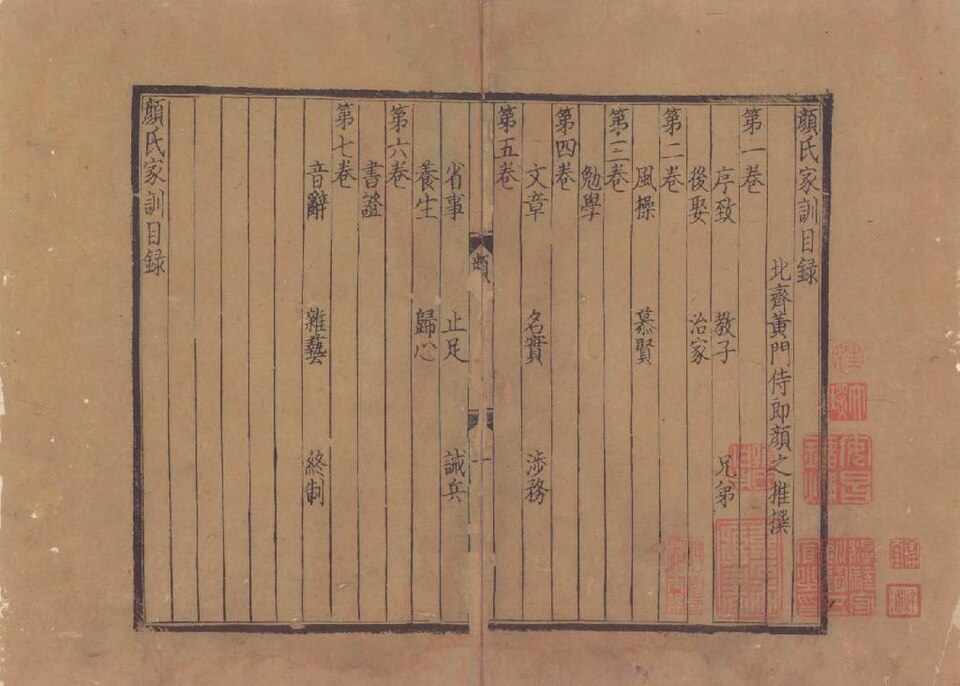 顏氏家訓目録
北齊黃門侍郎顏之推撰
第一卷
序致 教子 兄弟
後娶 治家
第二卷
風操 慕賢
第三卷
勉學
第四卷
文章 名實 涉務
第五卷
省事 止足 誡兵
養生 歸心
第六卷
書證
第七卷
音辭 雜藝 終制
顏氏家訓目録
顏
一